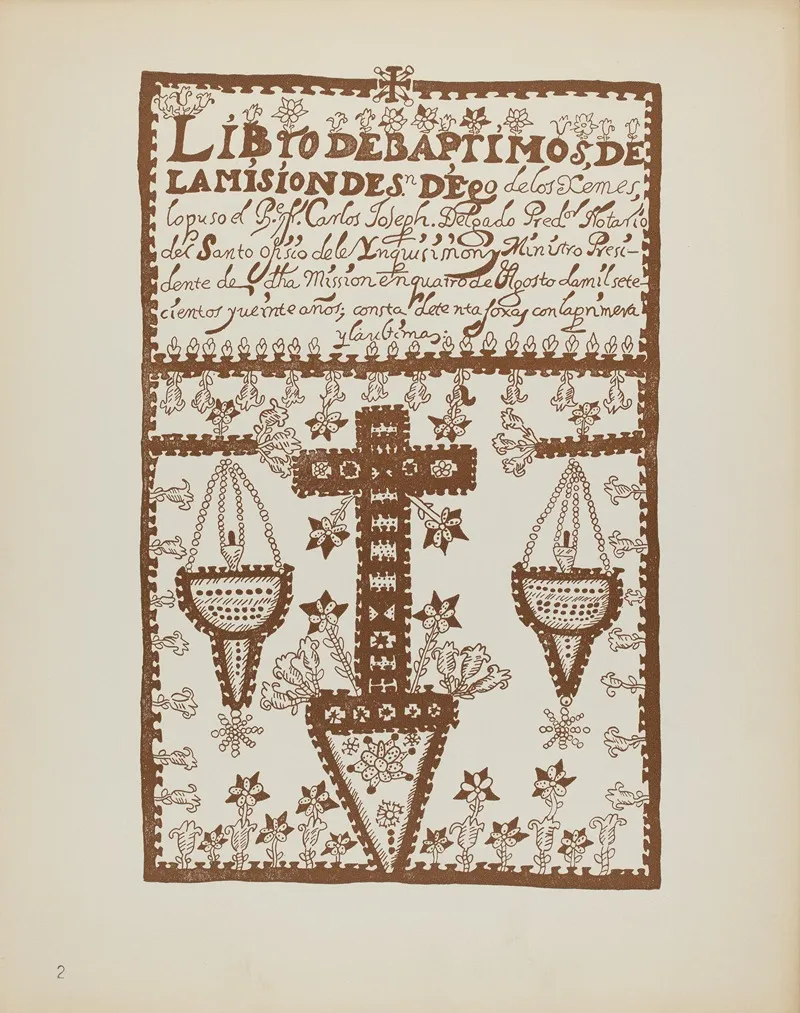 LIBrO DE BAPTIMOS, DE
LA MISION DE S.n DIEGO de los Xemes,
lo puso el P.e fr. Carlos Joseph. Delgado Pred.or Notario
del Santo Ofisio de le Ynquisimon, y Ministro Presi-
dente de dha Mission en quatro de Agosto da mil sete-
cientos y ueinte años; consta de te nta foxas con la primera
y la ultima;
2